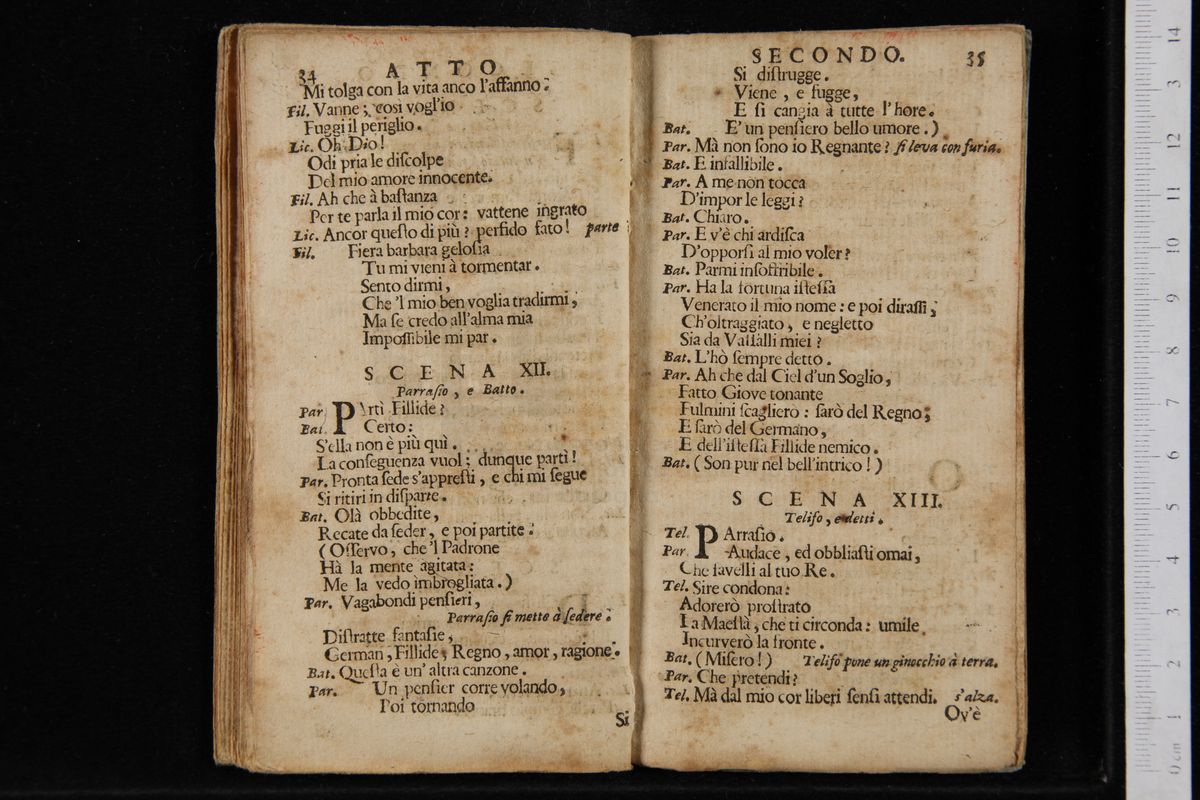 34 ATTO
Mi tolga con la vita anco l'affanno.
Fil. Vanne; così vogl'io
Fuggi il periglio.
Lic. Oh Dio!
Odi pria le diſcolpe
Del mio amore innocente.
Fil. Ah che à baſtanza
Per te parla il mio cor: vattene ingrato
Lic. Ancor queſto di più? perfido fato! parte
Fil. Fiera barbara geloſia
Tu mi vieni à tormentar.
Sento dirmi,
Che 'l mio ben voglia tradirmi,
Ma ſe credo all'alma mia
Impoſſibile mi par.
SCENA XII.
Parraſio, e Batto.
Par. PArtì Fillide?
Bat. Certo:
S'ella non è più quì.
La conſeguenza vuol; dunque partì!
Par. Pronta ſede s'appreſti, e chi mi ſegue
Si ritiri in diſparte.
Bat. Olà obbedite,
Recate da ſeder, e poi partite.
(Oſſervo, che 'l Padrone
Hà la mente agitata:
Me la vedo imbrogliata.)
Par. Vagabondi penſieri,
Parraſio ſi mette à ſedere.
Diſtratte fantaſie,
German, Fillide, Regno, amor, ragione.
Bat. Queſta è un' altra canzone.
Par. Un penſier corre volando,
Poi tornando
Si
SECONDO. 35
Si diſtrugge.
Viene, e fugge,
E ſi cangia à tutte l'hore.
Bat. E' un penſiero bello umore.)
Par. Mà non ſono io Regnante? ſi leva con furia.
Bat. E infallibile.
Par. A me non tocca
D'impor le leggi?
Bat. Chiaro.
Par. E v'è chi ardiſca
D'opporſi al mio voler?
Bat. Parmi inſoffribile.
Par. Ha la fortuna iſteſſa
Venerato il mio nome: e poi diraſſi,
Ch'oltraggiato, e negletto
Sia da Vaſſalli miei?
Bat. L'hò ſempre detto.
Par. Ah che dal Ciel d'un Soglio,
Fatto Giove tonante
Fulmini ſcagliero: ſarò del Regno;
E ſarò del Germano,
E dell'iſteſſa Fillide nemico.
Bat. (Son pur nel bell'intrico!)
SCENA XIII.
Teliſo, e detti.
Tel. PArraſio.
Par. Audace, ed obbliaſti omai,
Che favelli al tuo Re.
Tel. Sire condona:
Adorerò proſtrato
La Maeſtà, che ti circonda: umile
Incurverò la fronte.
Bat. (Miſero!) Teliſo pone un ginocchio à terra.
Par. Che pretendi?
Tel. Mà dal mio cor liberi ſenſi attendi. s'alza.
Ov'è
0 cm 1 2 3 4 5 6 7 8 9 10 11 12 13 14